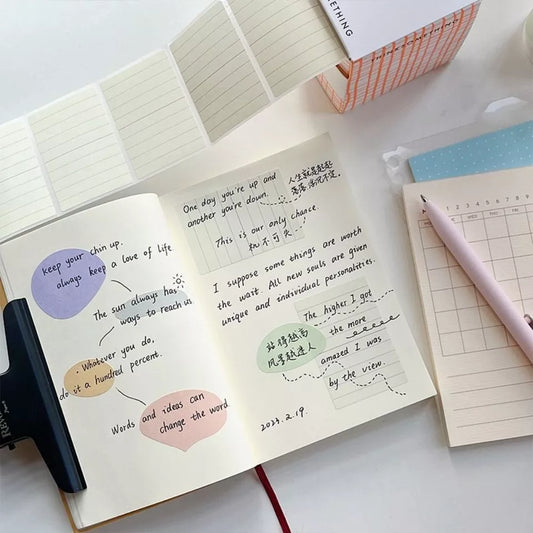 keep your chin up.
always keep a love of life
The sun always has
ways to reach us
· Whatever you do,
do it a hundred percent.
Words and ideas can
change the word
One day you're up and
another you're down.
人生就是起起
落落,
This is our only chance.
机不可失
I suppose some things are worth
the wait. All new souls are given
unique and individual personalities.
The higher I got
the more
amazed I was
by the view.
站得越高
风景越迷人
2023.2.19.